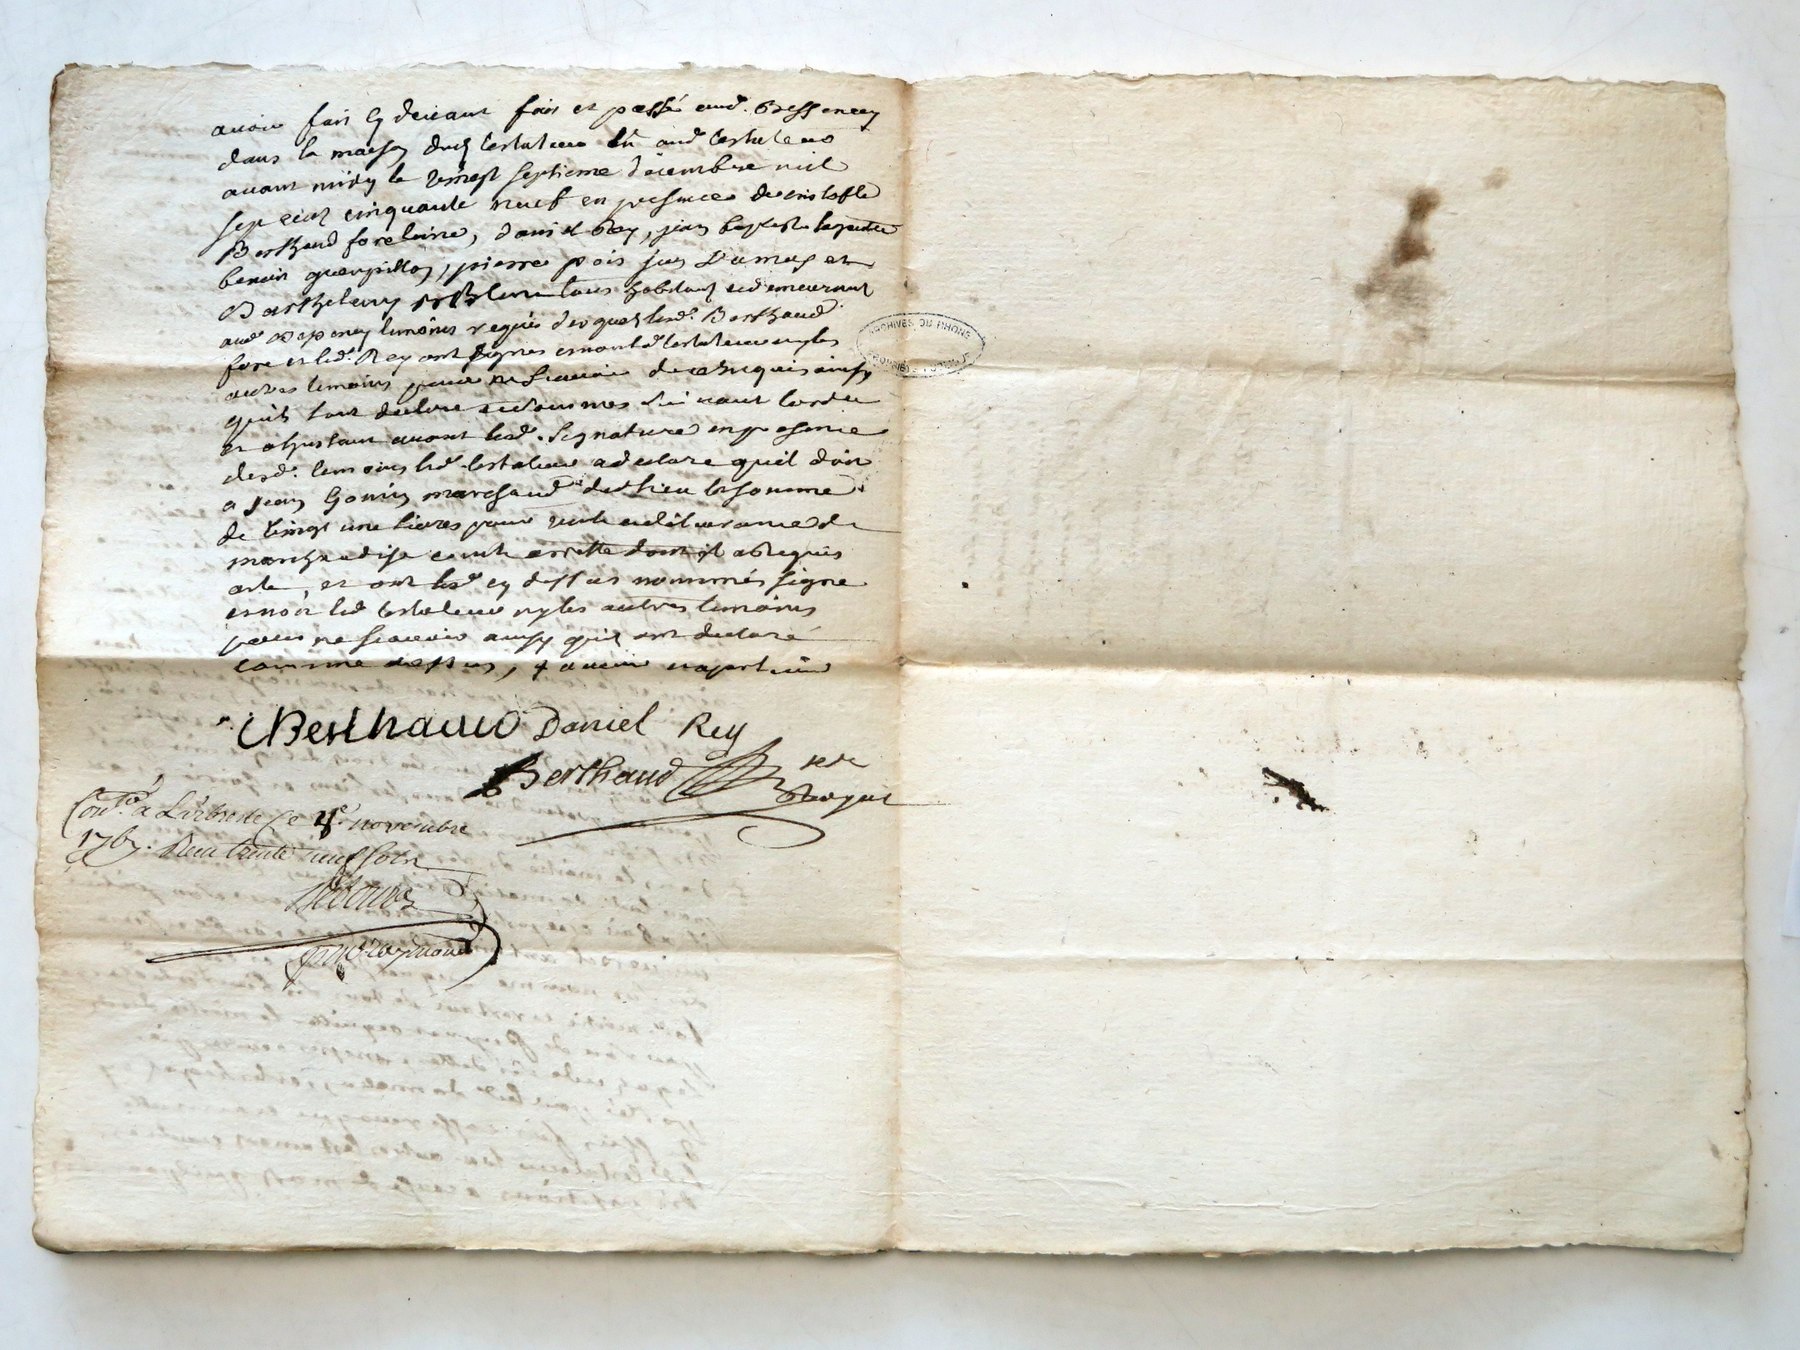 avoir fait cy devant fait et passé aud. Bessenay
dans la maison dud testateur lû aud testateur
avant midy le vingt septieme décembre mil
sept cent cinquante neuf en presence de cristofle
Berthaud forétaire, daniel Rey, jean baptiste
benoit guerpillon, pierre pois jean Dumas et
Barthelemy tous habitants et demeurant
aud Bessenay temoins requis desquels led. Berthaud
fore et led. Rey ont signés et non led testateur ny les
autres temoins pour ne scavoir de ce enquis ainsy
quils l'ont declare et sommes suivant l'ordce
et a l'instant avant lesd. signatures en presence
desd. temoins led. testateur a declare quil doit
a jean Gonin marchand dud lieu la somme
de vingt une livres pour vente et délivrance de
marchandise compte arretté dont il a requis
acte, et ont lesd cy dessus nommés signé
et non led testateur ny les autres temoins
pour ne scavoir ainsy quil ont declaré
comme dessus,
Berthaud Daniel Rey
Berthaud
Con.lé à L'arbresle Ce novembre
1767. Reçu trente neuf sols
ARCHIVES DU RHONE